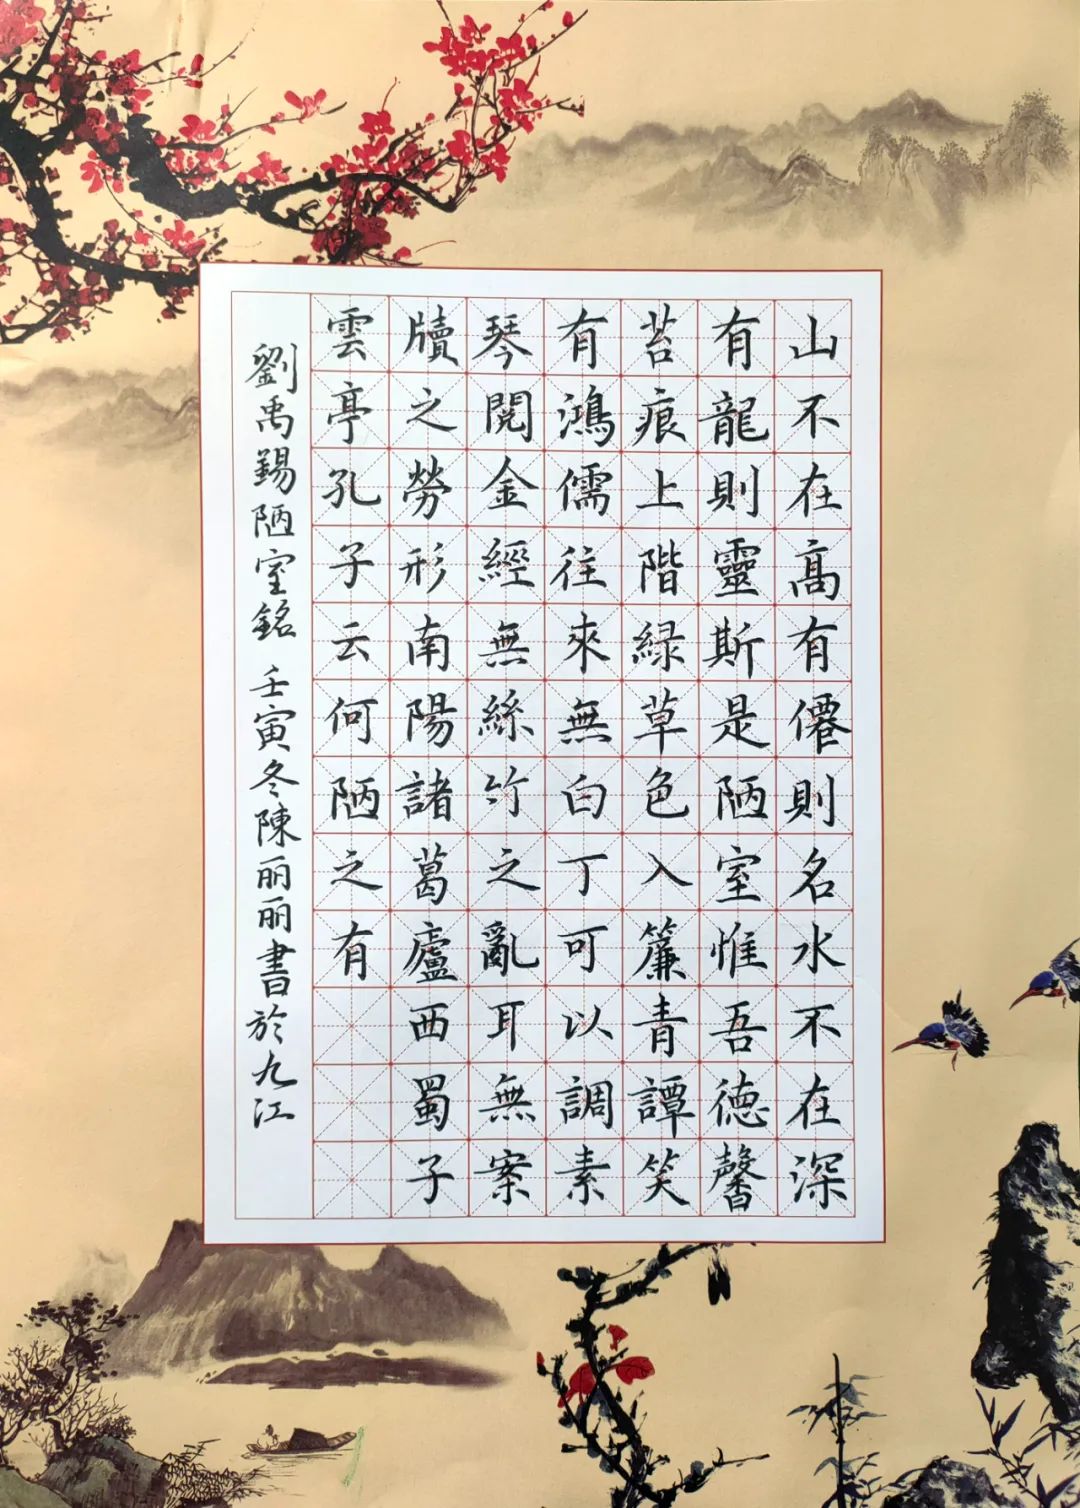 山不在高有僊則名水不在深
有龍則靈斯是陋室惟吾德馨
苔痕上階緑草色入簾青譚笑
有鴻儒往來無白丁可以調素
琴閱金經無絲竹之亂耳無案
牘之勞形南陽諸葛廬西蜀子
雲亭孔子云何陋之有
劉禹錫陋室銘 壬寅冬陳丽丽書於九江